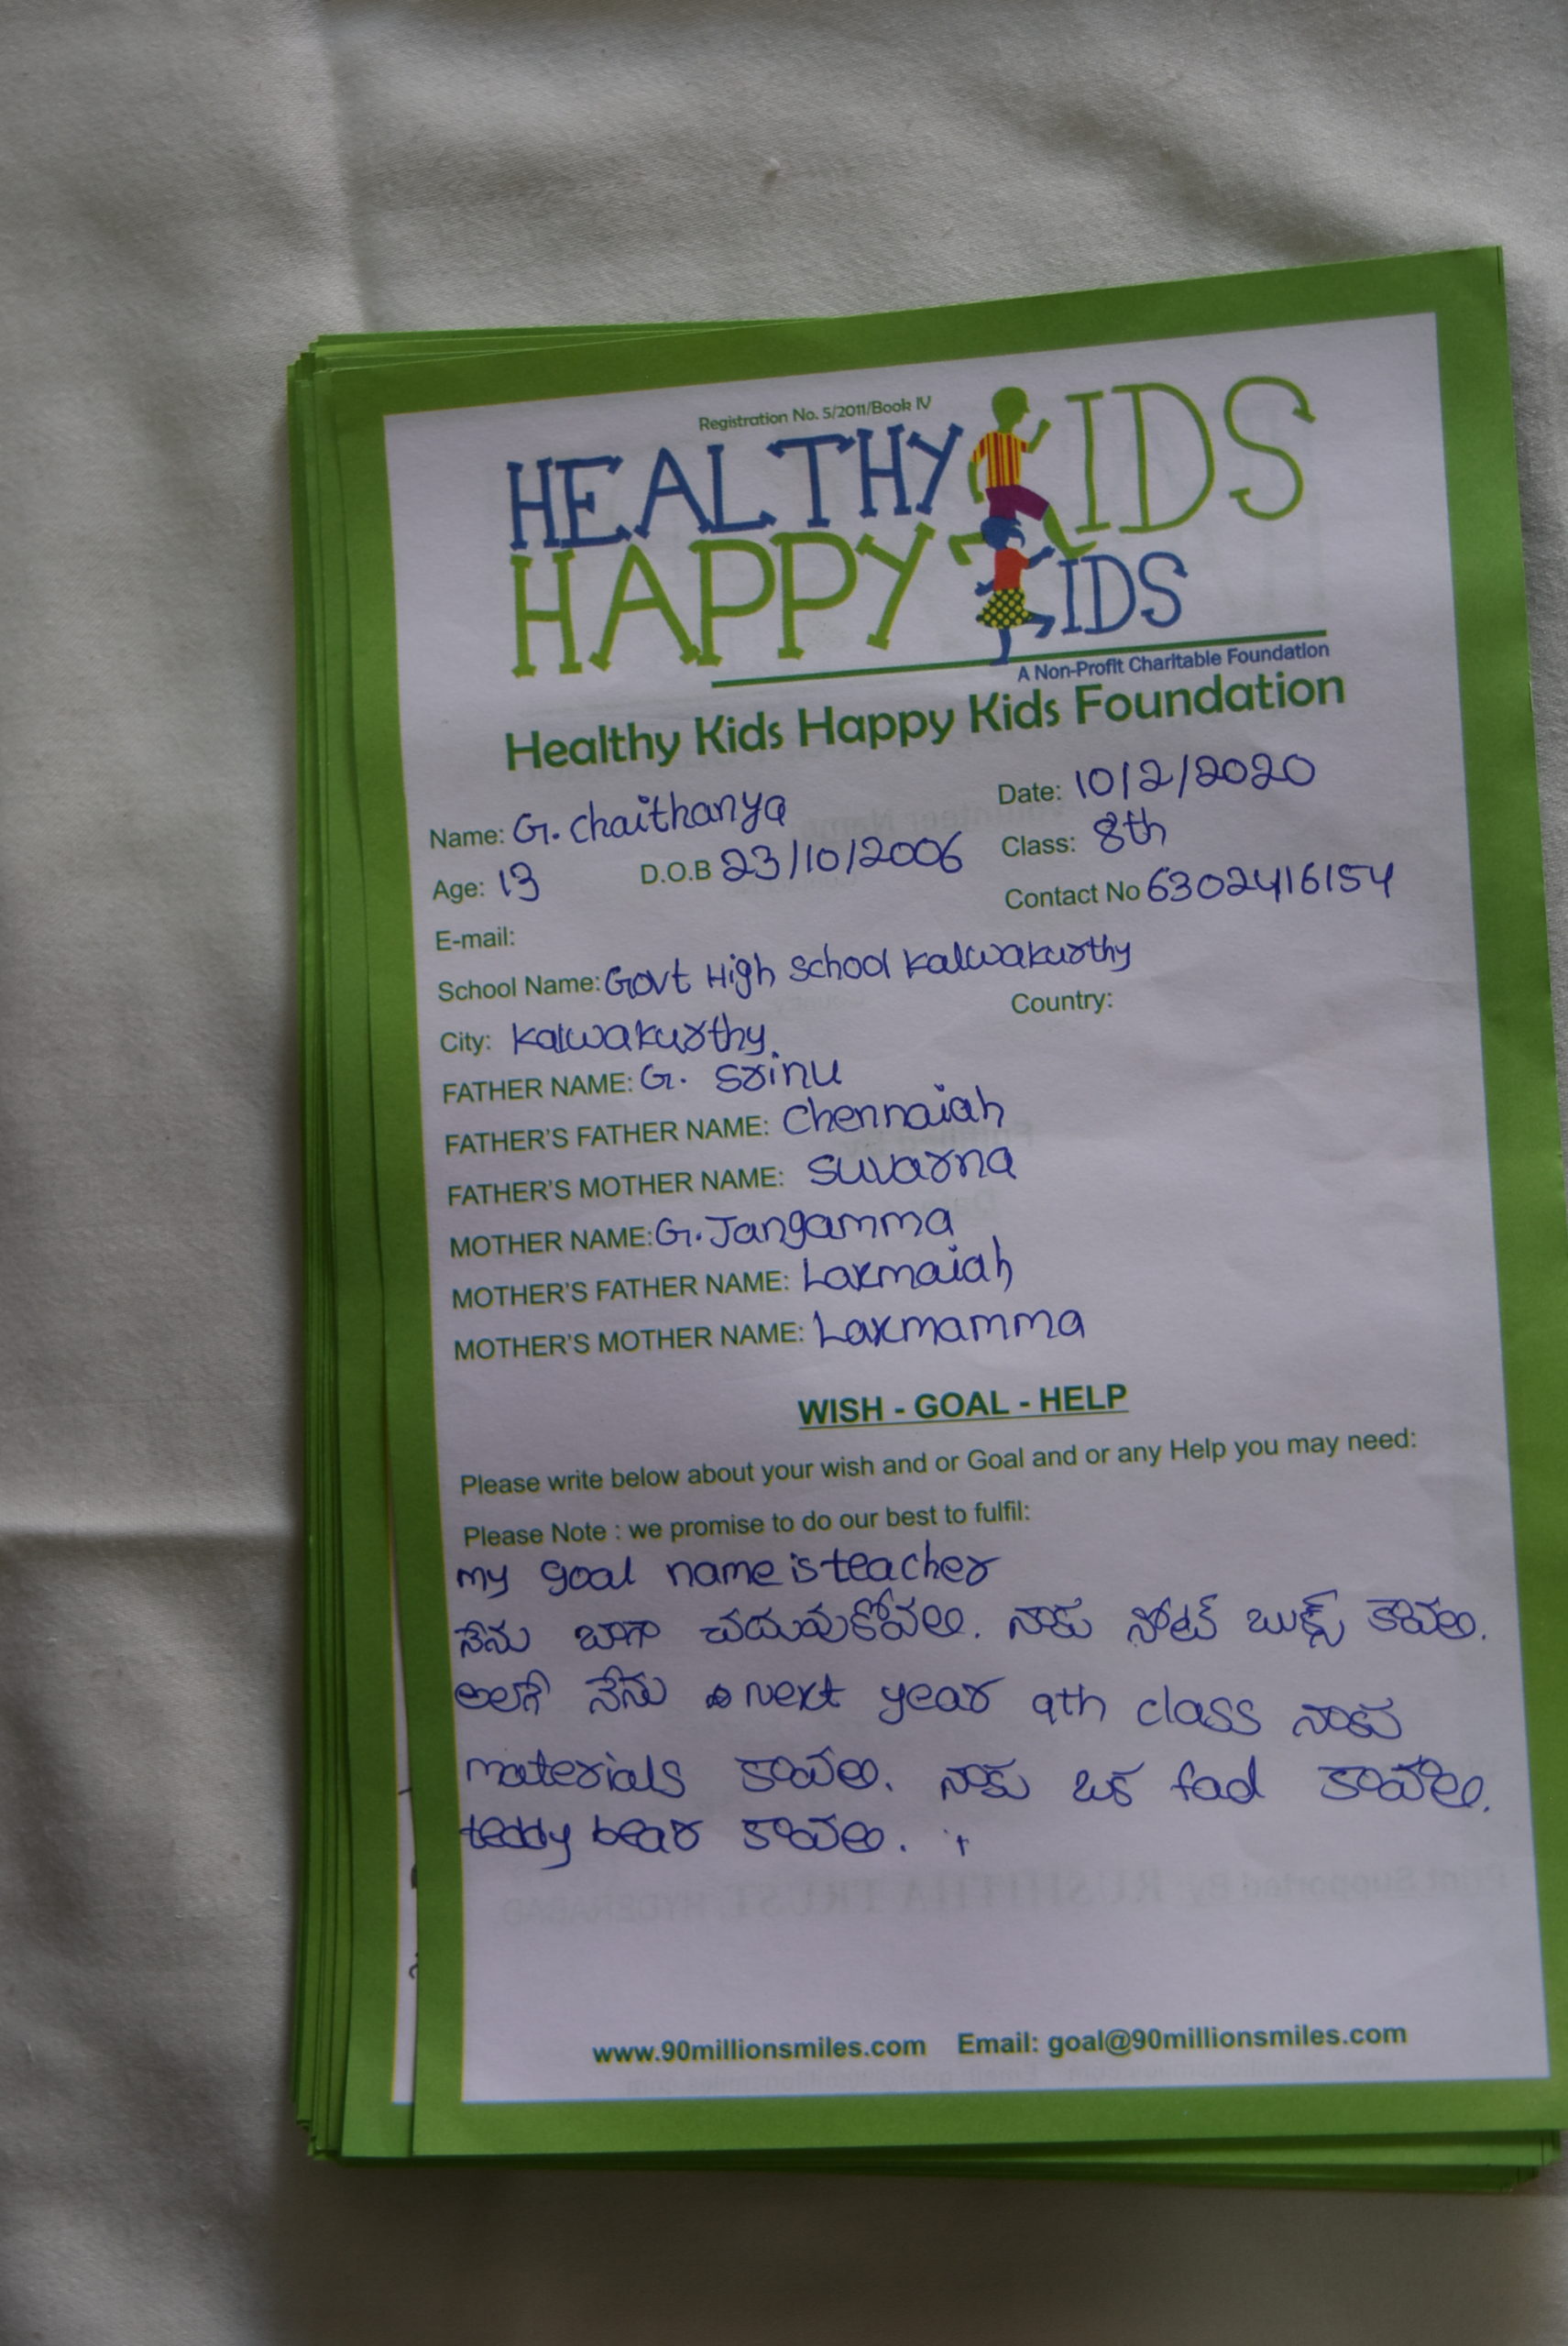 Registration No. 5/2011/Book IV
HEALTHY KIDS
HAPPY KIDS
A Non-Profit Charitable Foundation
Healthy Kids Happy Kids Foundation
Name: G. chaithanya Date: 10/2/2020
Age: 13 D.O.B 23/10/2006 Class: 8th
E-mail: Contact No 6302416154
School Name: Govt High school kalwakurthy
City: kalwakurthy. Country:
FATHER NAME: G. Srinu
FATHER'S FATHER NAME: Chennaiah
FATHER'S MOTHER NAME: suvarna
MOTHER NAME: G. Jangamma
MOTHER'S FATHER NAME: Laxmaiah
MOTHER'S MOTHER NAME: Laxmamma
WISH - GOAL - HELP
Please write below about your wish and or Goal and or any Help you may need:
Please Note : we promise to do our best to fulfil:
my goal name is teacher
నేను బాగా చదువుకోవలి. నాకు నోట్ బుక్స్ కావలి.
అలగే నేను Next year 9th class నాకు
materials కావలి. నాకు ఒక fad కావలి.
teddy bear కావలి.
www.90millionsmiles.com Email: goal@90millionsmiles.com